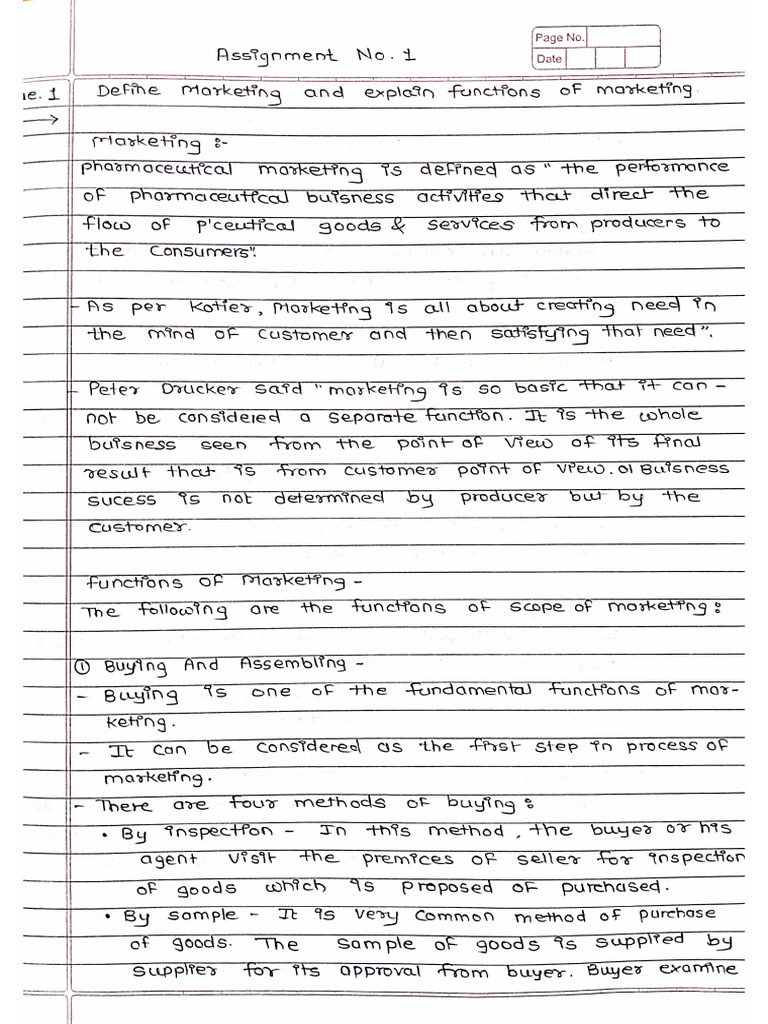 Assignment No. 1
Page No.
Date
ue. 1 Define Marketing and explain functions of marketing.
→
Marketing :-
pharmaceutical marketing is defined as " the performance
of pharmaceutical buisness activities that direct the
flow of p'ceutical goods & services from producers to
the Consumers".
- As per Kotler, Marketing is all about creating need in
the mind of customer and then satisfying that need".
- Peter Drucker said " marketing is so basic that it can -
not be considered a separate function. It is the whole
buisness seen from the point of view of its final
result that is from customer point of view. Buisness
sucess is not determined by producer but by the
customer.
functions of Marketing -
The following are the functions of scope of marketing :
① Buying And Assembling -
- Buying is one of the fundamental functions of mar-
keting.
- It can be considered as the first step in process of
marketing.
- There are four methods of buying :
• By inspection - In this method, the buyer or his
agent visit the premices of seller for inspection
of goods which is proposed of purchased.
• By sample - It is very common method of purchase
of goods. The sample of goods is supplied by
supplier for its approval from buyer. Buyer examine